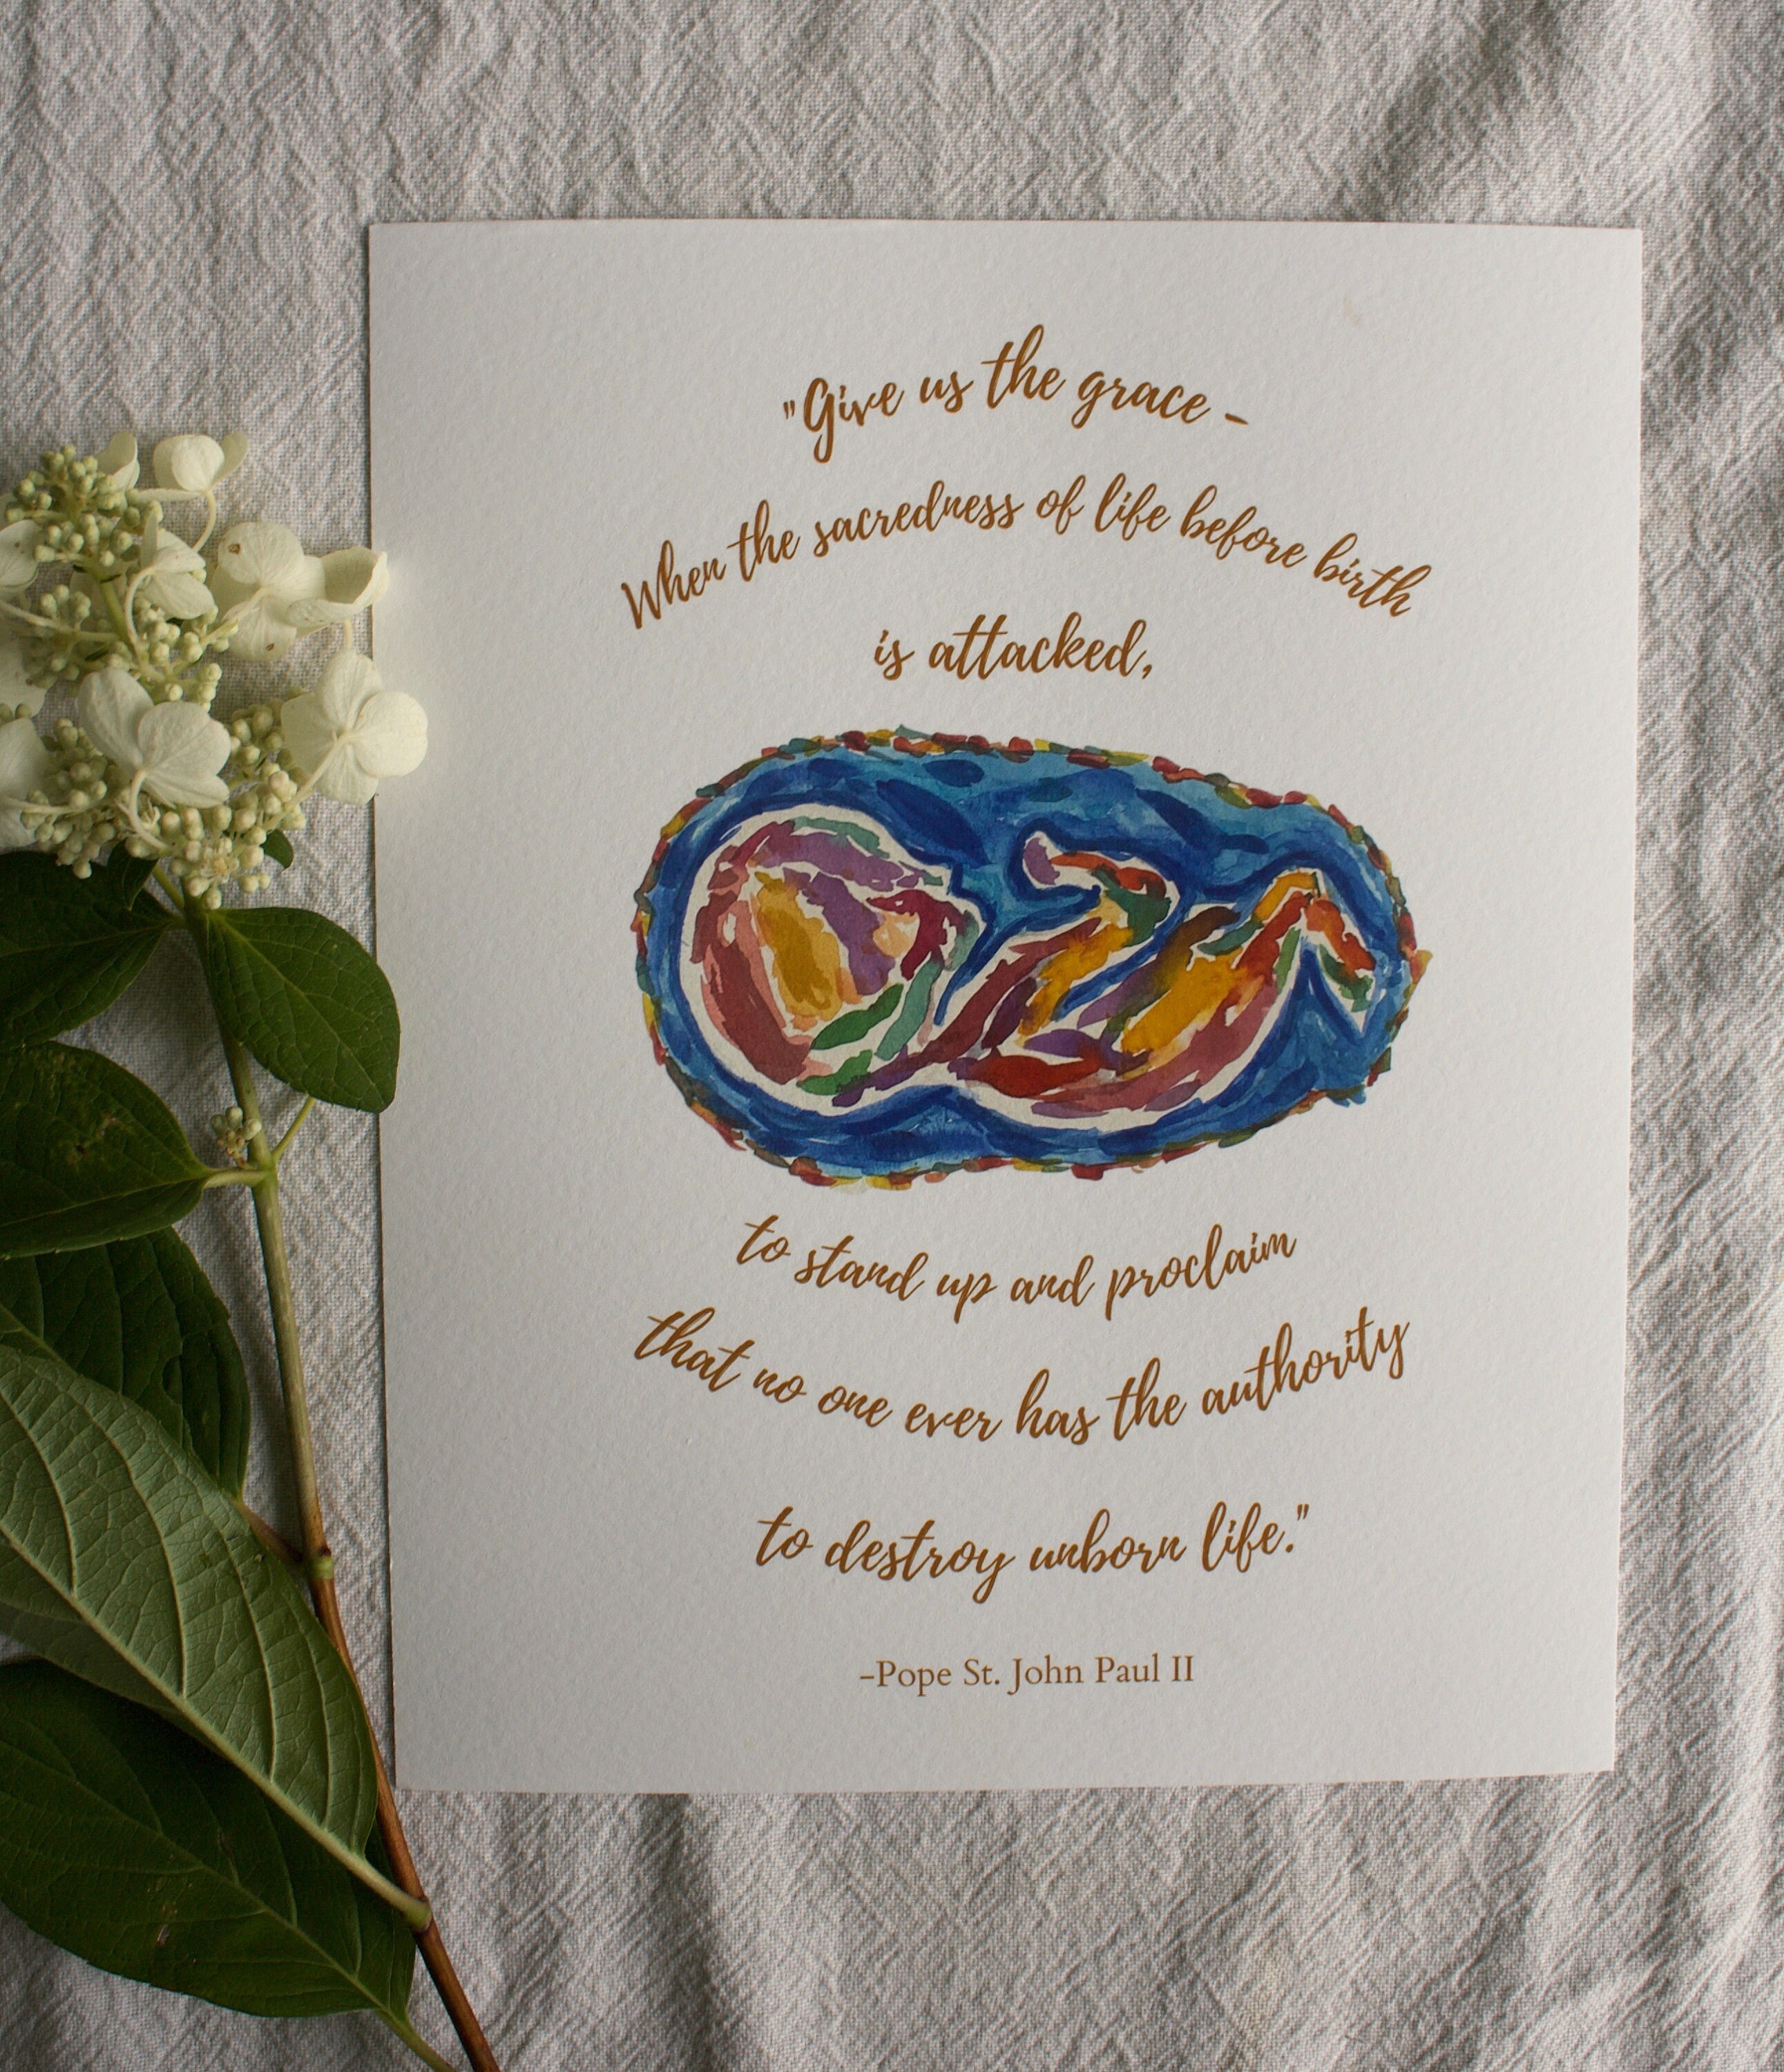 "Give us the grace -
When the sacredness of life before birth
is attacked,
to stand up and proclaim
that no one ever has the authority
to destroy unborn life."
-Pope St. John Paul II